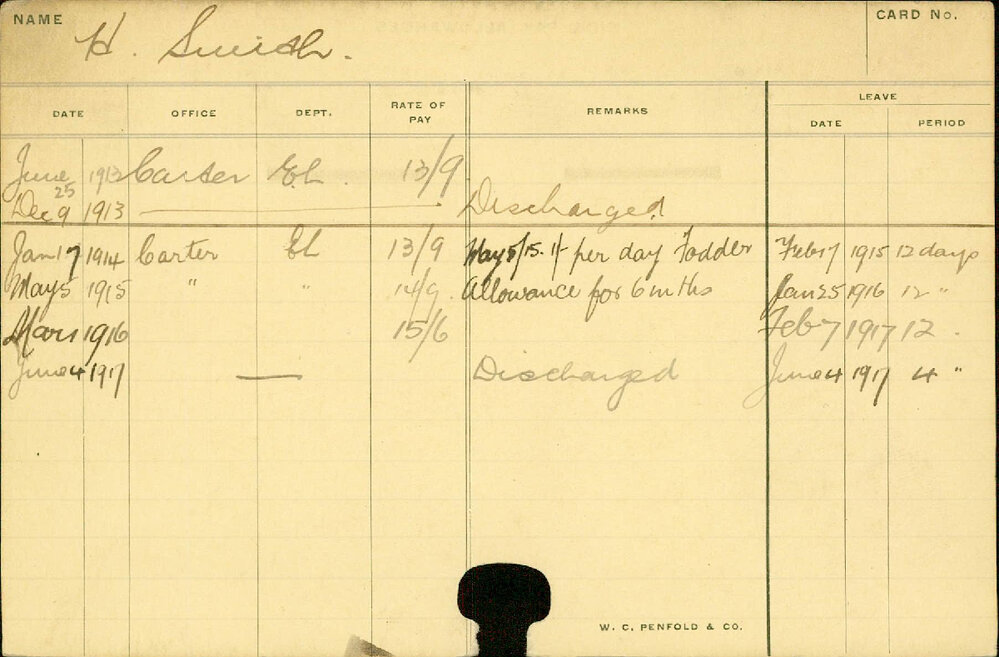 NAME H. Smith. CARD No.
LEAVE
DATE OFFICE DEPT. RATE OF PAY REMARKS DATE PERIOD
June 25 1913 Carter EL. 13/9
Dec 9 1913 Discharged
Jan 17 1914 Carter EL 13/9 May 5/15. 1/- per day Fodder Feb 17 1915 12 days
May 5 1915 " " 14/9. Allowance for 6 mths Jan 25 1916 12 "
Mar 1 1916 15/6 Feb 7 1917 12 .
June 4 1917 — Discharged June 4 1917 4 "
W. C. PENFOLD & CO.